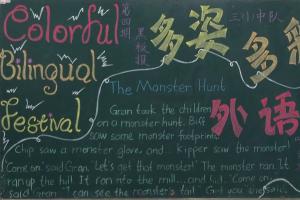 Colorful
Bilingual
Festival
第四期
黑板报
多姿多彩
三小中队
外语
The Monster Hunt
Gran took the children
on a monster hunt. Biff
saw some monster footprints.
Chip saw a monster glove and... Kipper saw the monster!
"Come on," said Gran. "Let's get that monster!" The monster ran. It
ran up the hill. It ran into the mill... and fell. "Come on,"
said Gran. "I can see the monster's tail."